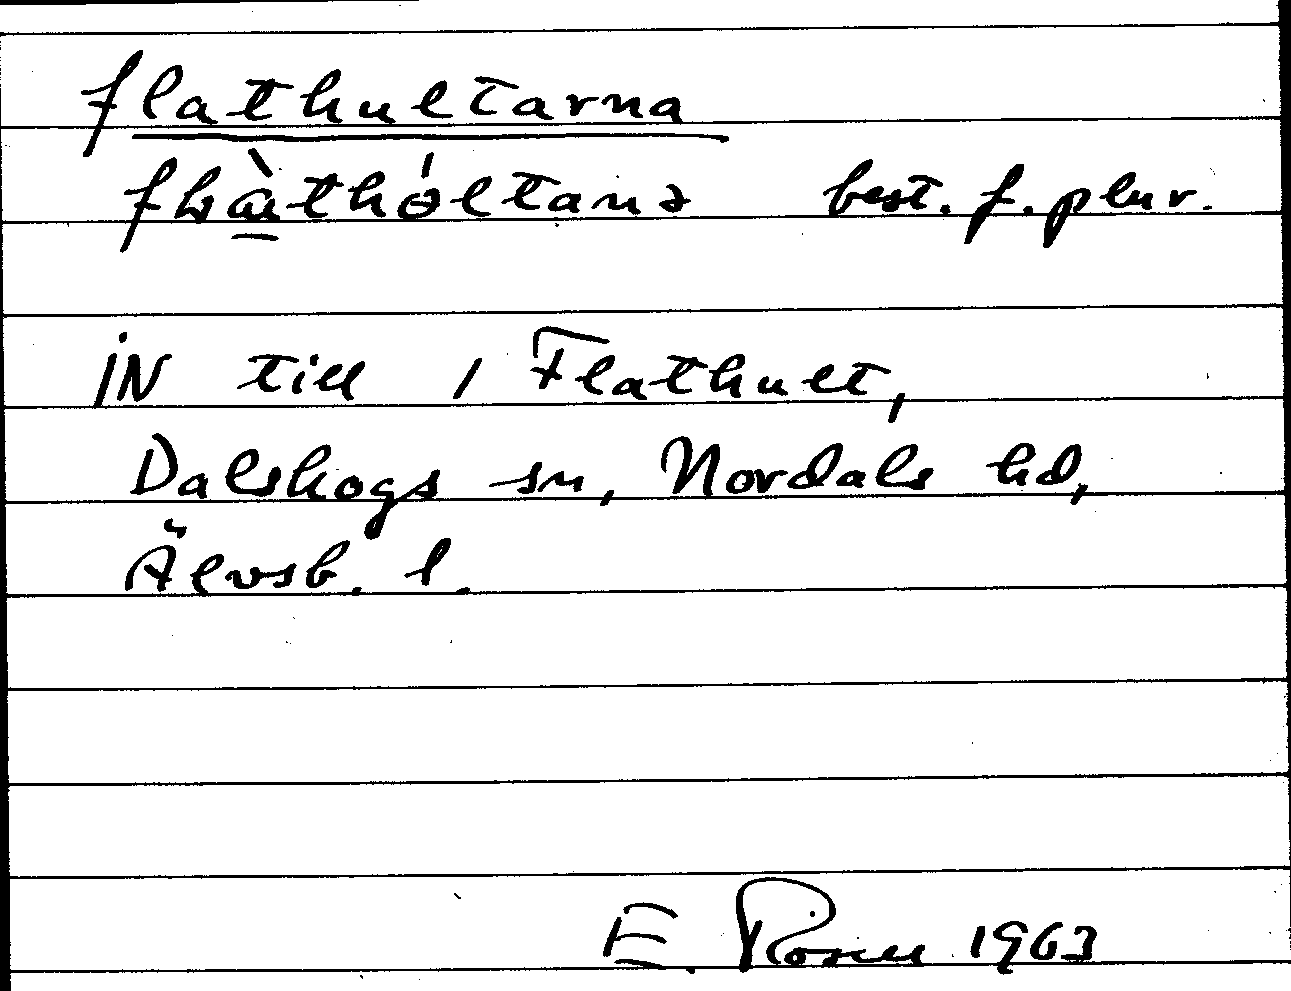 flathultarna
best. f. plur.
IN till 1 Flathult,
Dalskogs sn, Nordals hd,
Älvsb. l.
E. Rosell 1963